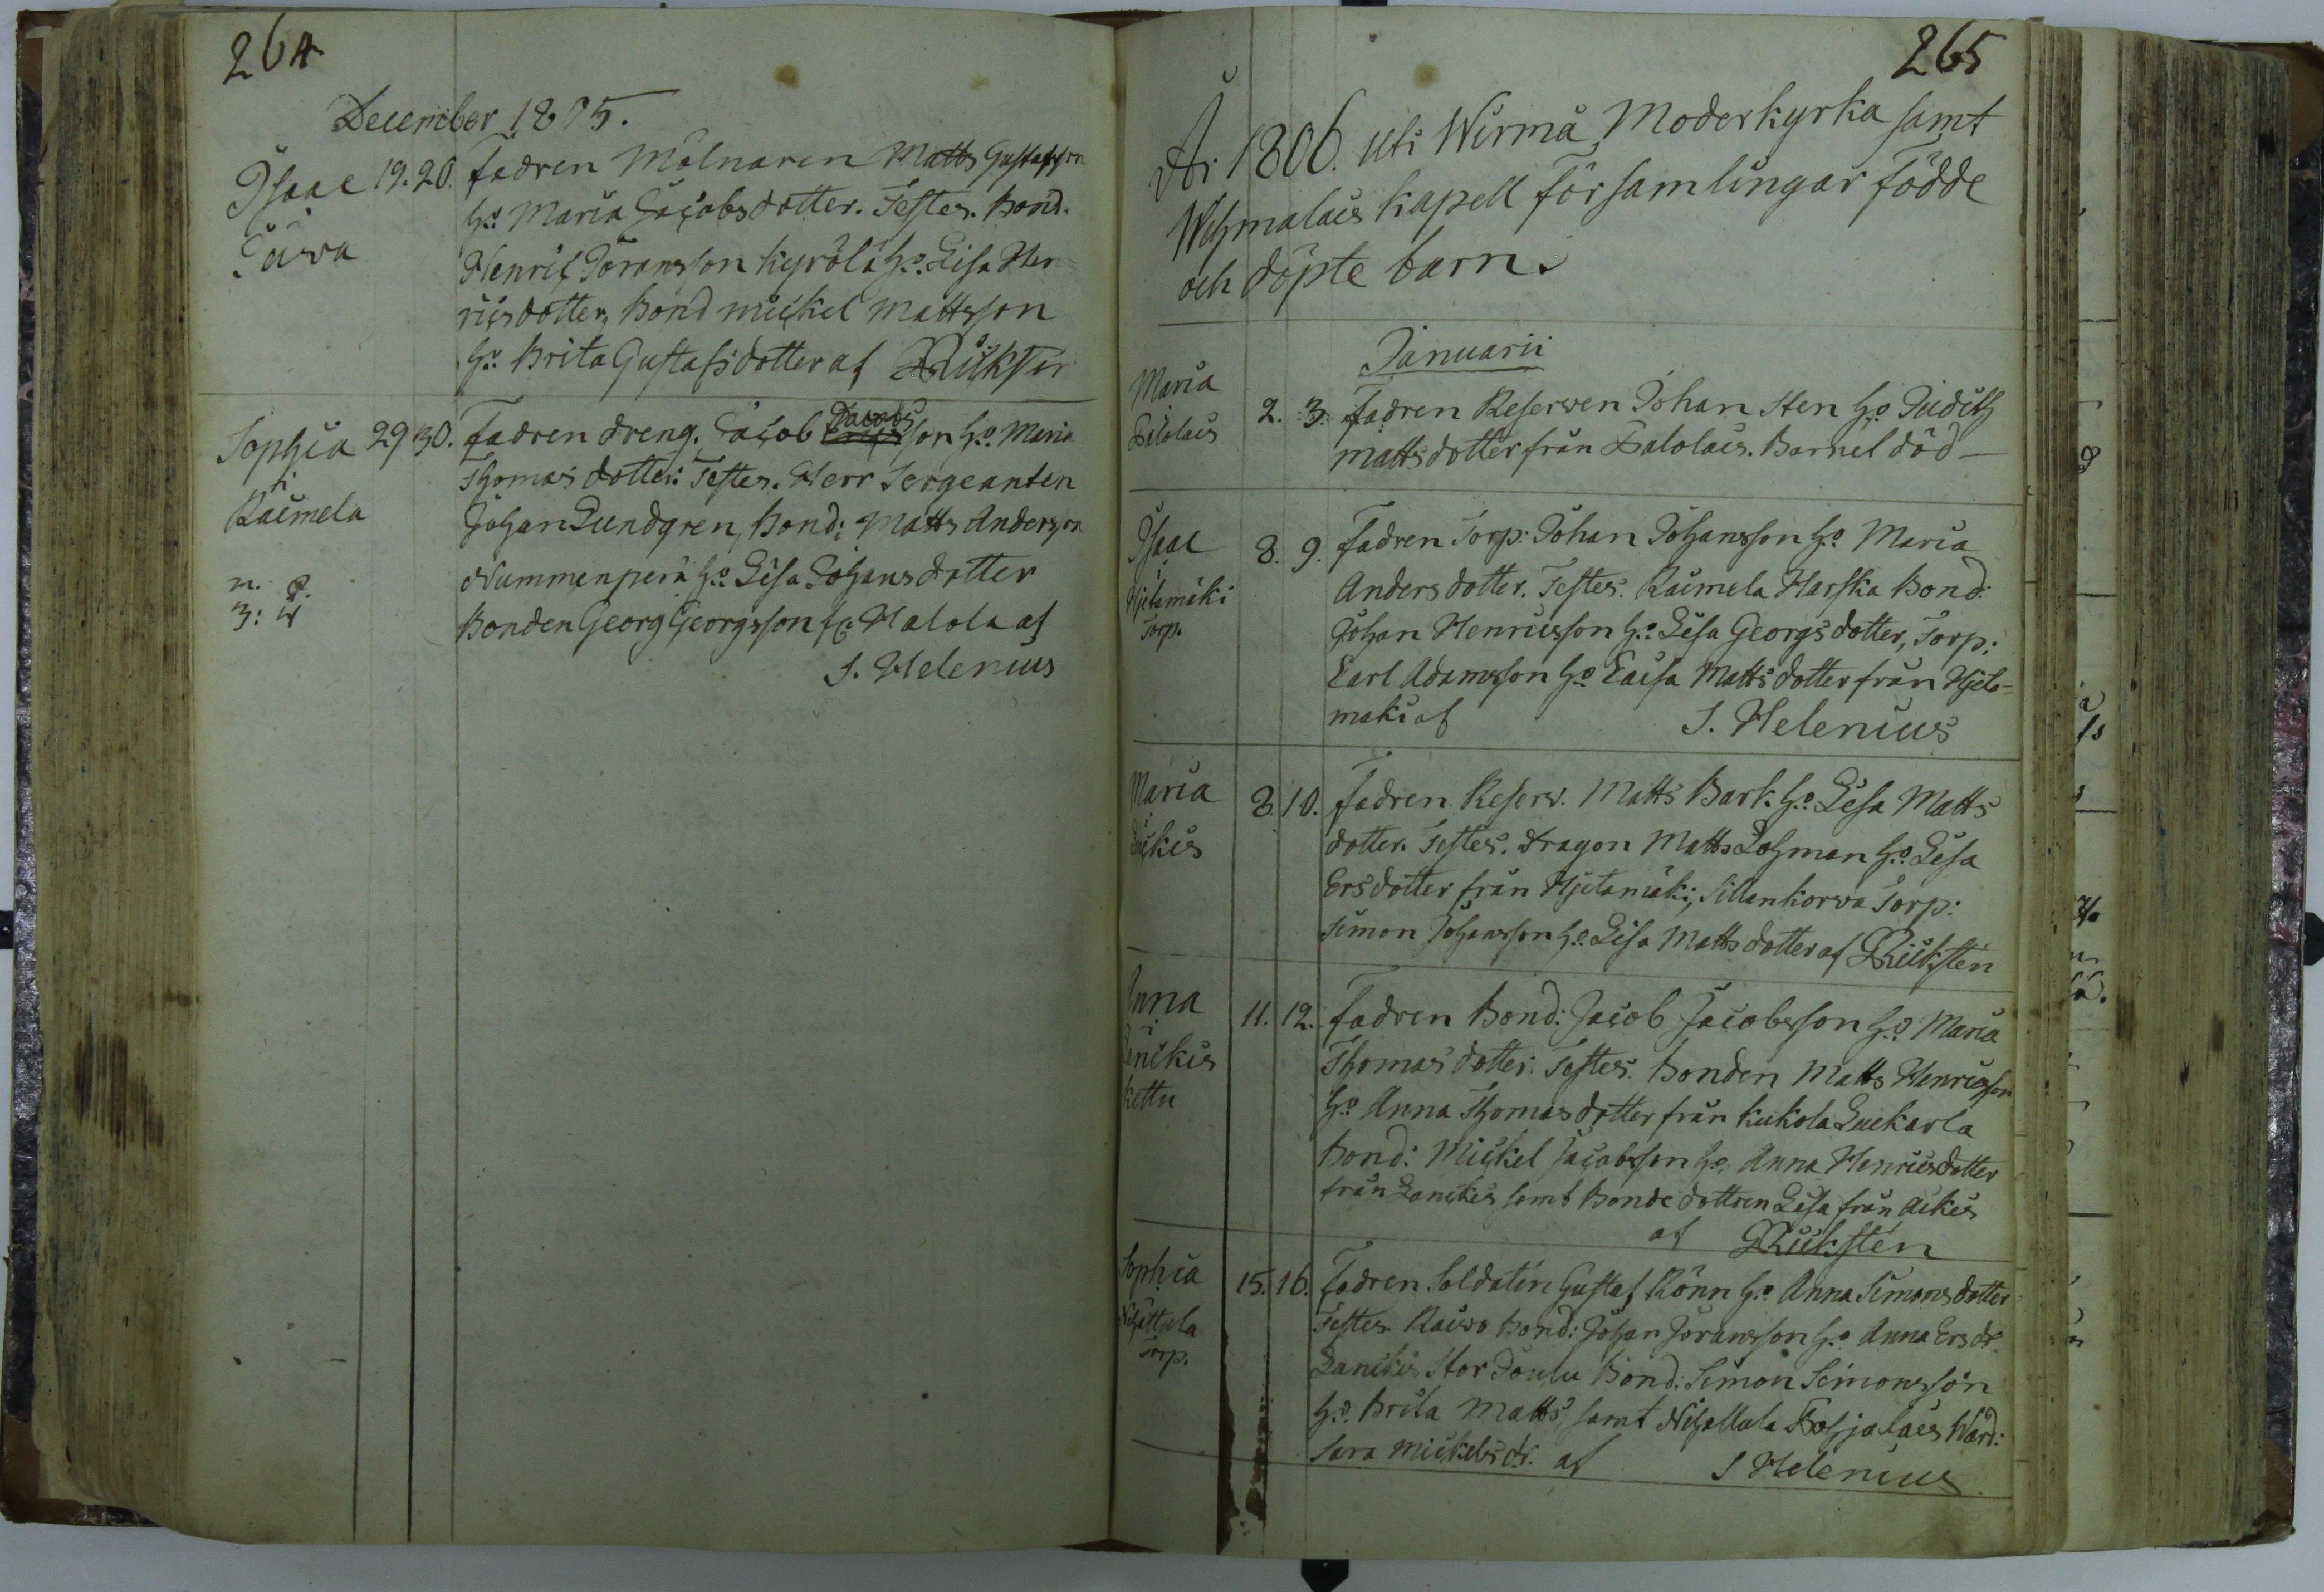 264
December 1805.
Isaac 19. 20. fadren Mölnaren Matts Gustafsson
h:o Maria Jacobsdotter. Testes. Bond.
Henric Göransson Kyrölä h:o Lisa Hen-
ricsdotter, Bond mickel mattsson
h:o Brita Gustafsdotter af Rücksten
Sophia 29 30. Fadren dreng. Jacob Jacobs son h:o Maria
Thomas dotter. Testes. Herr Sergeanten
Raimela
Johan Lundgren, Bond: Matts Andersson
Nummenperä h:o Lisa Johansdotter
n. 8.
3:
Bonden Georg Georgsson fr: Halola af
S. Helenius
265
År 1806. uti Wirmå Moderkyrka samt
Wehmalais kapell församlingar födde
och döpte barn.
Januarii
Maria
2. 3. fadren Reserven Johan Sten h:o Judith
mattsdotter från Palolais. Barnet död
Isaac
Hjetamäki
Torp.
8. 9. Fadren Torp: Johan Johansson h:o Maria
Andersdotter. Testes: Raimela Harska Bond:
Johan Henricsson h:o Lisa Georgsdotter, Torp:
Carl Adamsson h:o Caisa Mattsdotter från Hjeta-
maki af S. Helenius
Maria
8. 10. fadren Reserv. Matts Bark h:o Lisa Matts
dotter. Testes. Dragon Matts Lohman h:o Lisa
Ersdotter från Hjetamäki, Sillankorva Torp:
Simon Johansson h:o Lisa Mattsdotter af Rücksten
Anna
Lanikis
Kettu
11. 12. fadren Bond: Jacob Jacobsson h:o Maria
Thomas dotter. Testes. Bonden Matts Henricsson
h:o Anna Thomasdotter från Kukola Luekarla
Bond: Mickel Jacobsson h:o Anna Henricsdotter
från Lanikis samt Bonde dottren Lisa från Aikis
af Rücksten
Sophia
Nihattula
Torp.
15. 16. Fadren Soldaten Gustaf Rönn h:o Anna Simonsdotter
Testes. Raivo Bond: Johan Jöransson h:o Anna Ersdr.
Lanikis Stor Joulu Bond: Simon Simonsson
h:o Brita Matts, samt Nihattula Pohjalais Wärd:
Sara Mickelsdr. af S Helenius